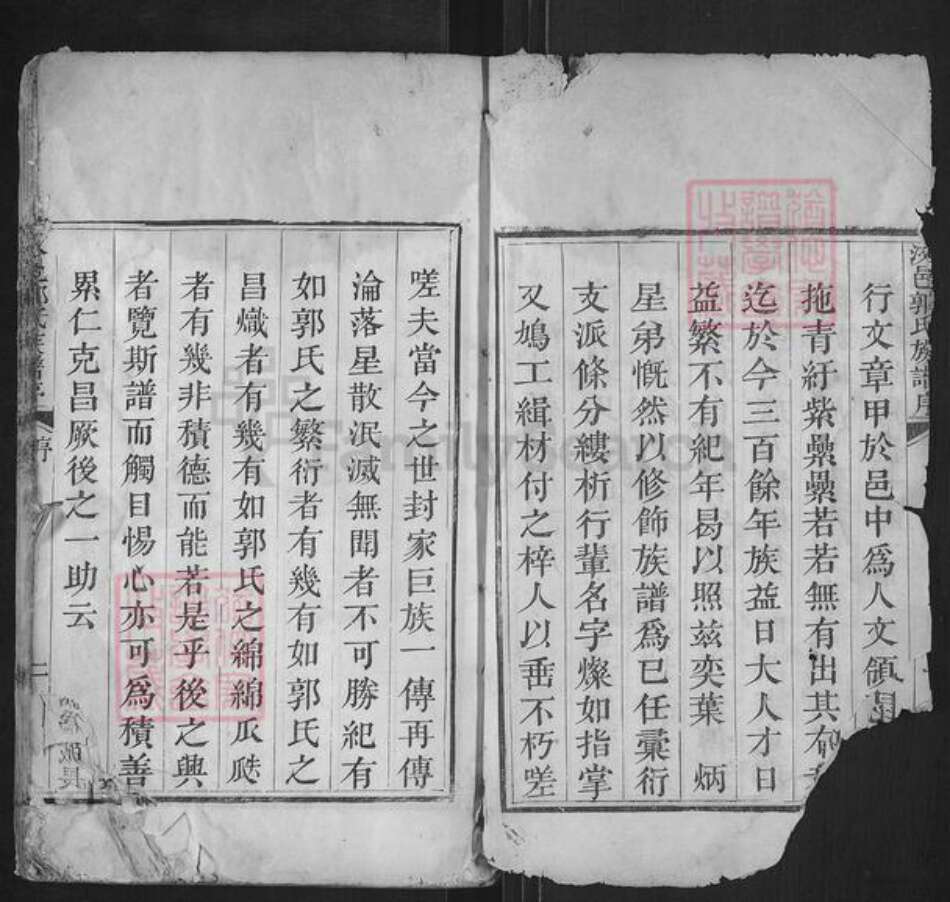 邑郭氏族譜序
行文章甲於邑中爲人文領
拖青紆紫纍纍若若無有出其右
迄於今三百餘年族益日大人才日
益繁不有紀年曷以照兹奕葉 炳
星弟慨然以修飾族譜爲已任彚衍
支派條分縷析行輩名字燦如指掌
又鳩工緝材付之梓人以垂不朽嗟
嗟夫當今之世封家巨族一傳再傳
淪落星散泯滅無聞者不可勝紀有
如郭氏之繁衍者有幾有如郭氏之
昌熾者有幾有如郭氏之綿綿瓜瓞
者有幾非積德而能若是乎後之興
者覽斯譜而觸目惕心亦可爲積善
累仁克昌厥後之一助云
序
二